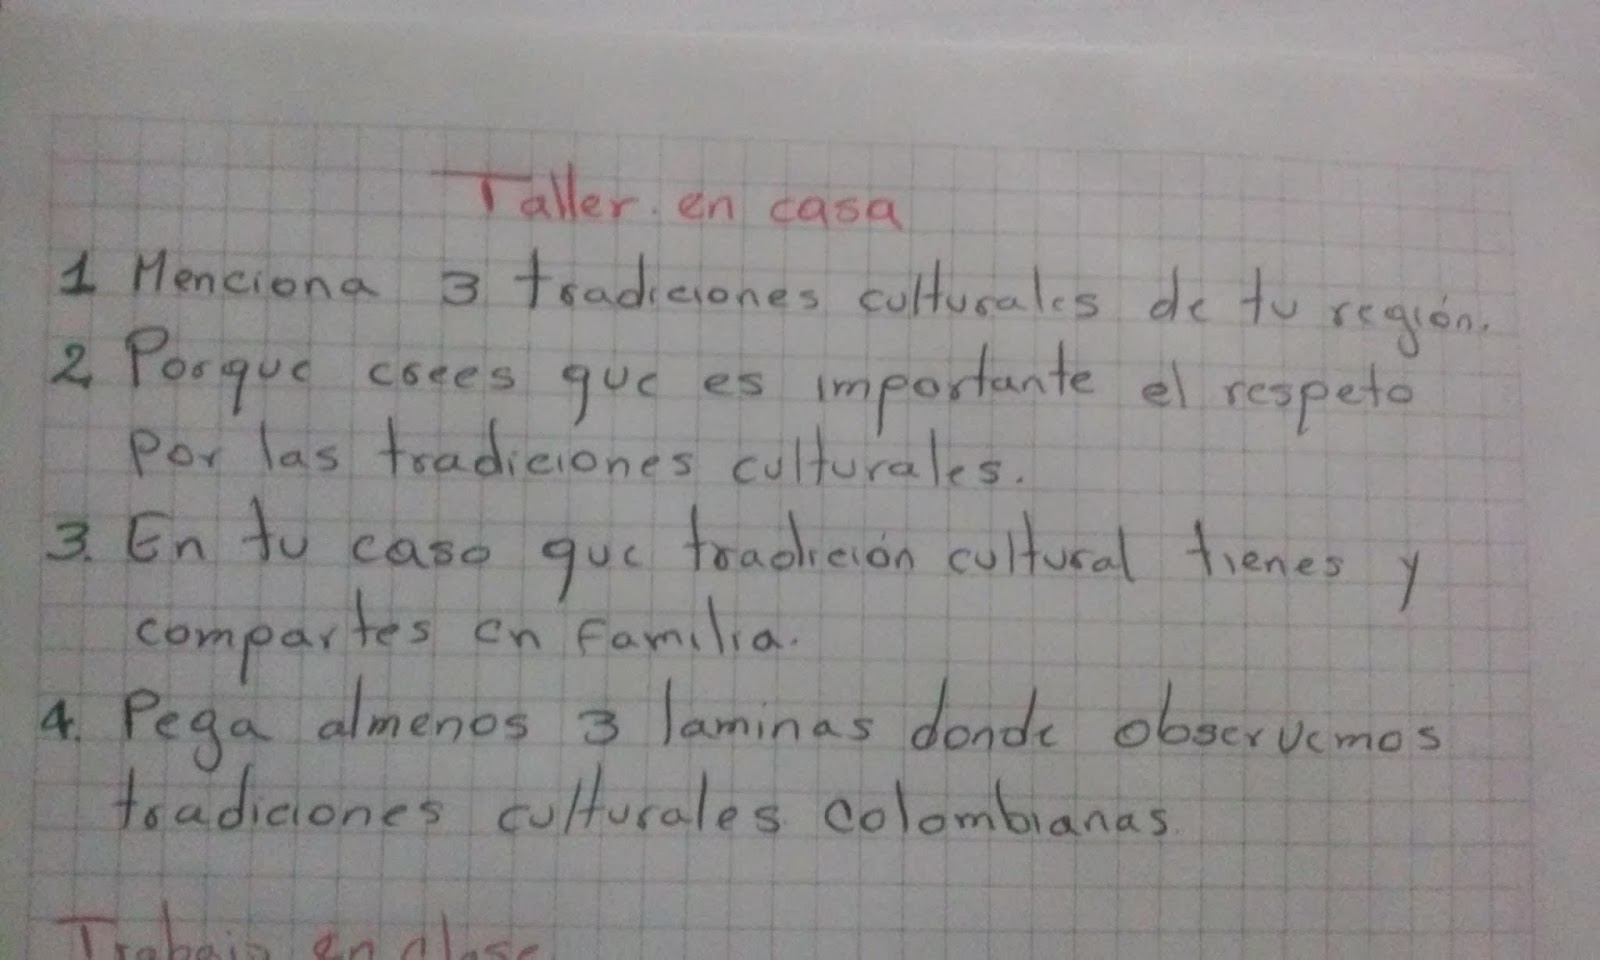 Taller en casa
1 Menciona 3 tradiciones culturales de tu región.
2 Porque crees que es importante el respeto
por las tradiciones culturales.
3. En tu caso que tradición cultural tienes y
compartes en familia.
4. Pega almenos 3 laminas donde observemos
tradiciones culturales colombianas
Trabajo en clase